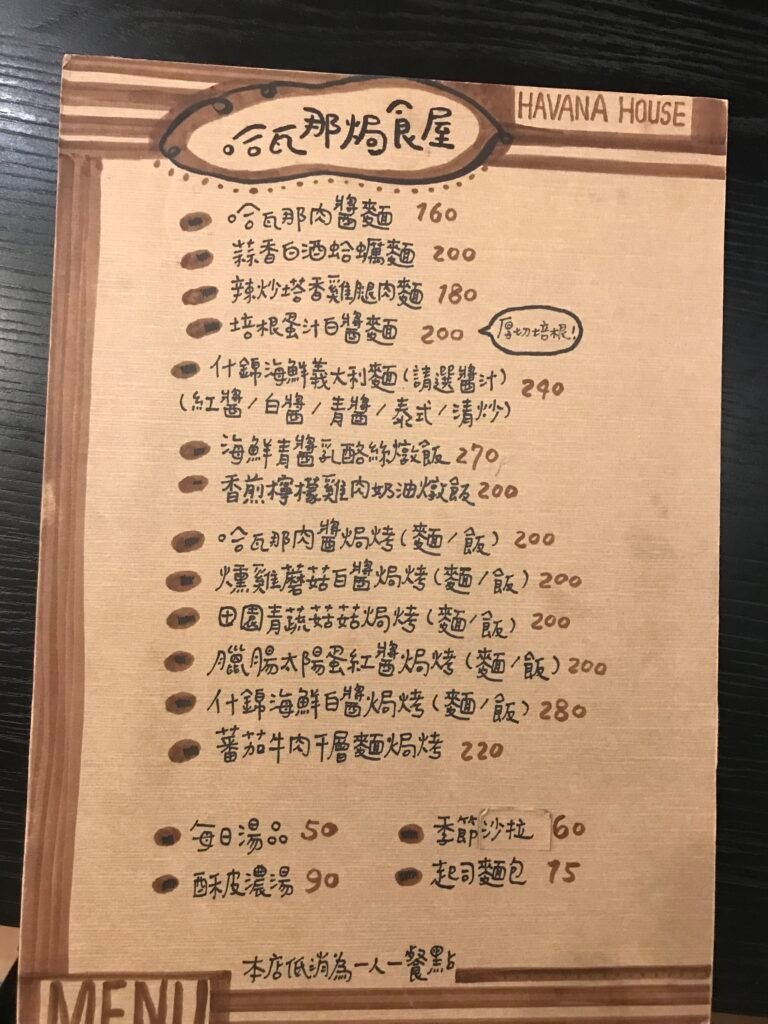 HAVANA HOUSE
哈瓦那焗食屋
哈瓦那肉醬麵 160
蒜香白酒蛤蠣麵 200
辣炒塔香雞腿肉麵 180
培根蛋汁白醬麵 200 厚切培根!
什錦海鮮義大利麵(請選醬汁) 240
(紅醬/白醬/青醬/泰式/清炒)
海鮮青醬乳酪絲燉飯 270
香煎檸檬雞肉奶油燉飯 200
哈瓦那肉醬焗烤(麵/飯) 200
燻雞蘑菇白醬焗烤(麵/飯) 200
田園青蔬菇菇焗烤(麵/飯) 200
臘腸太陽蛋紅醬焗烤(麵/飯) 200
什錦海鮮白醬焗烤(麵/飯) 280
蕃茄牛肉千層麵焗烤 220
每日湯品 50 季節沙拉 60
酥皮濃湯 90 起司麵包 75
本店低消為一人一餐點
MENU